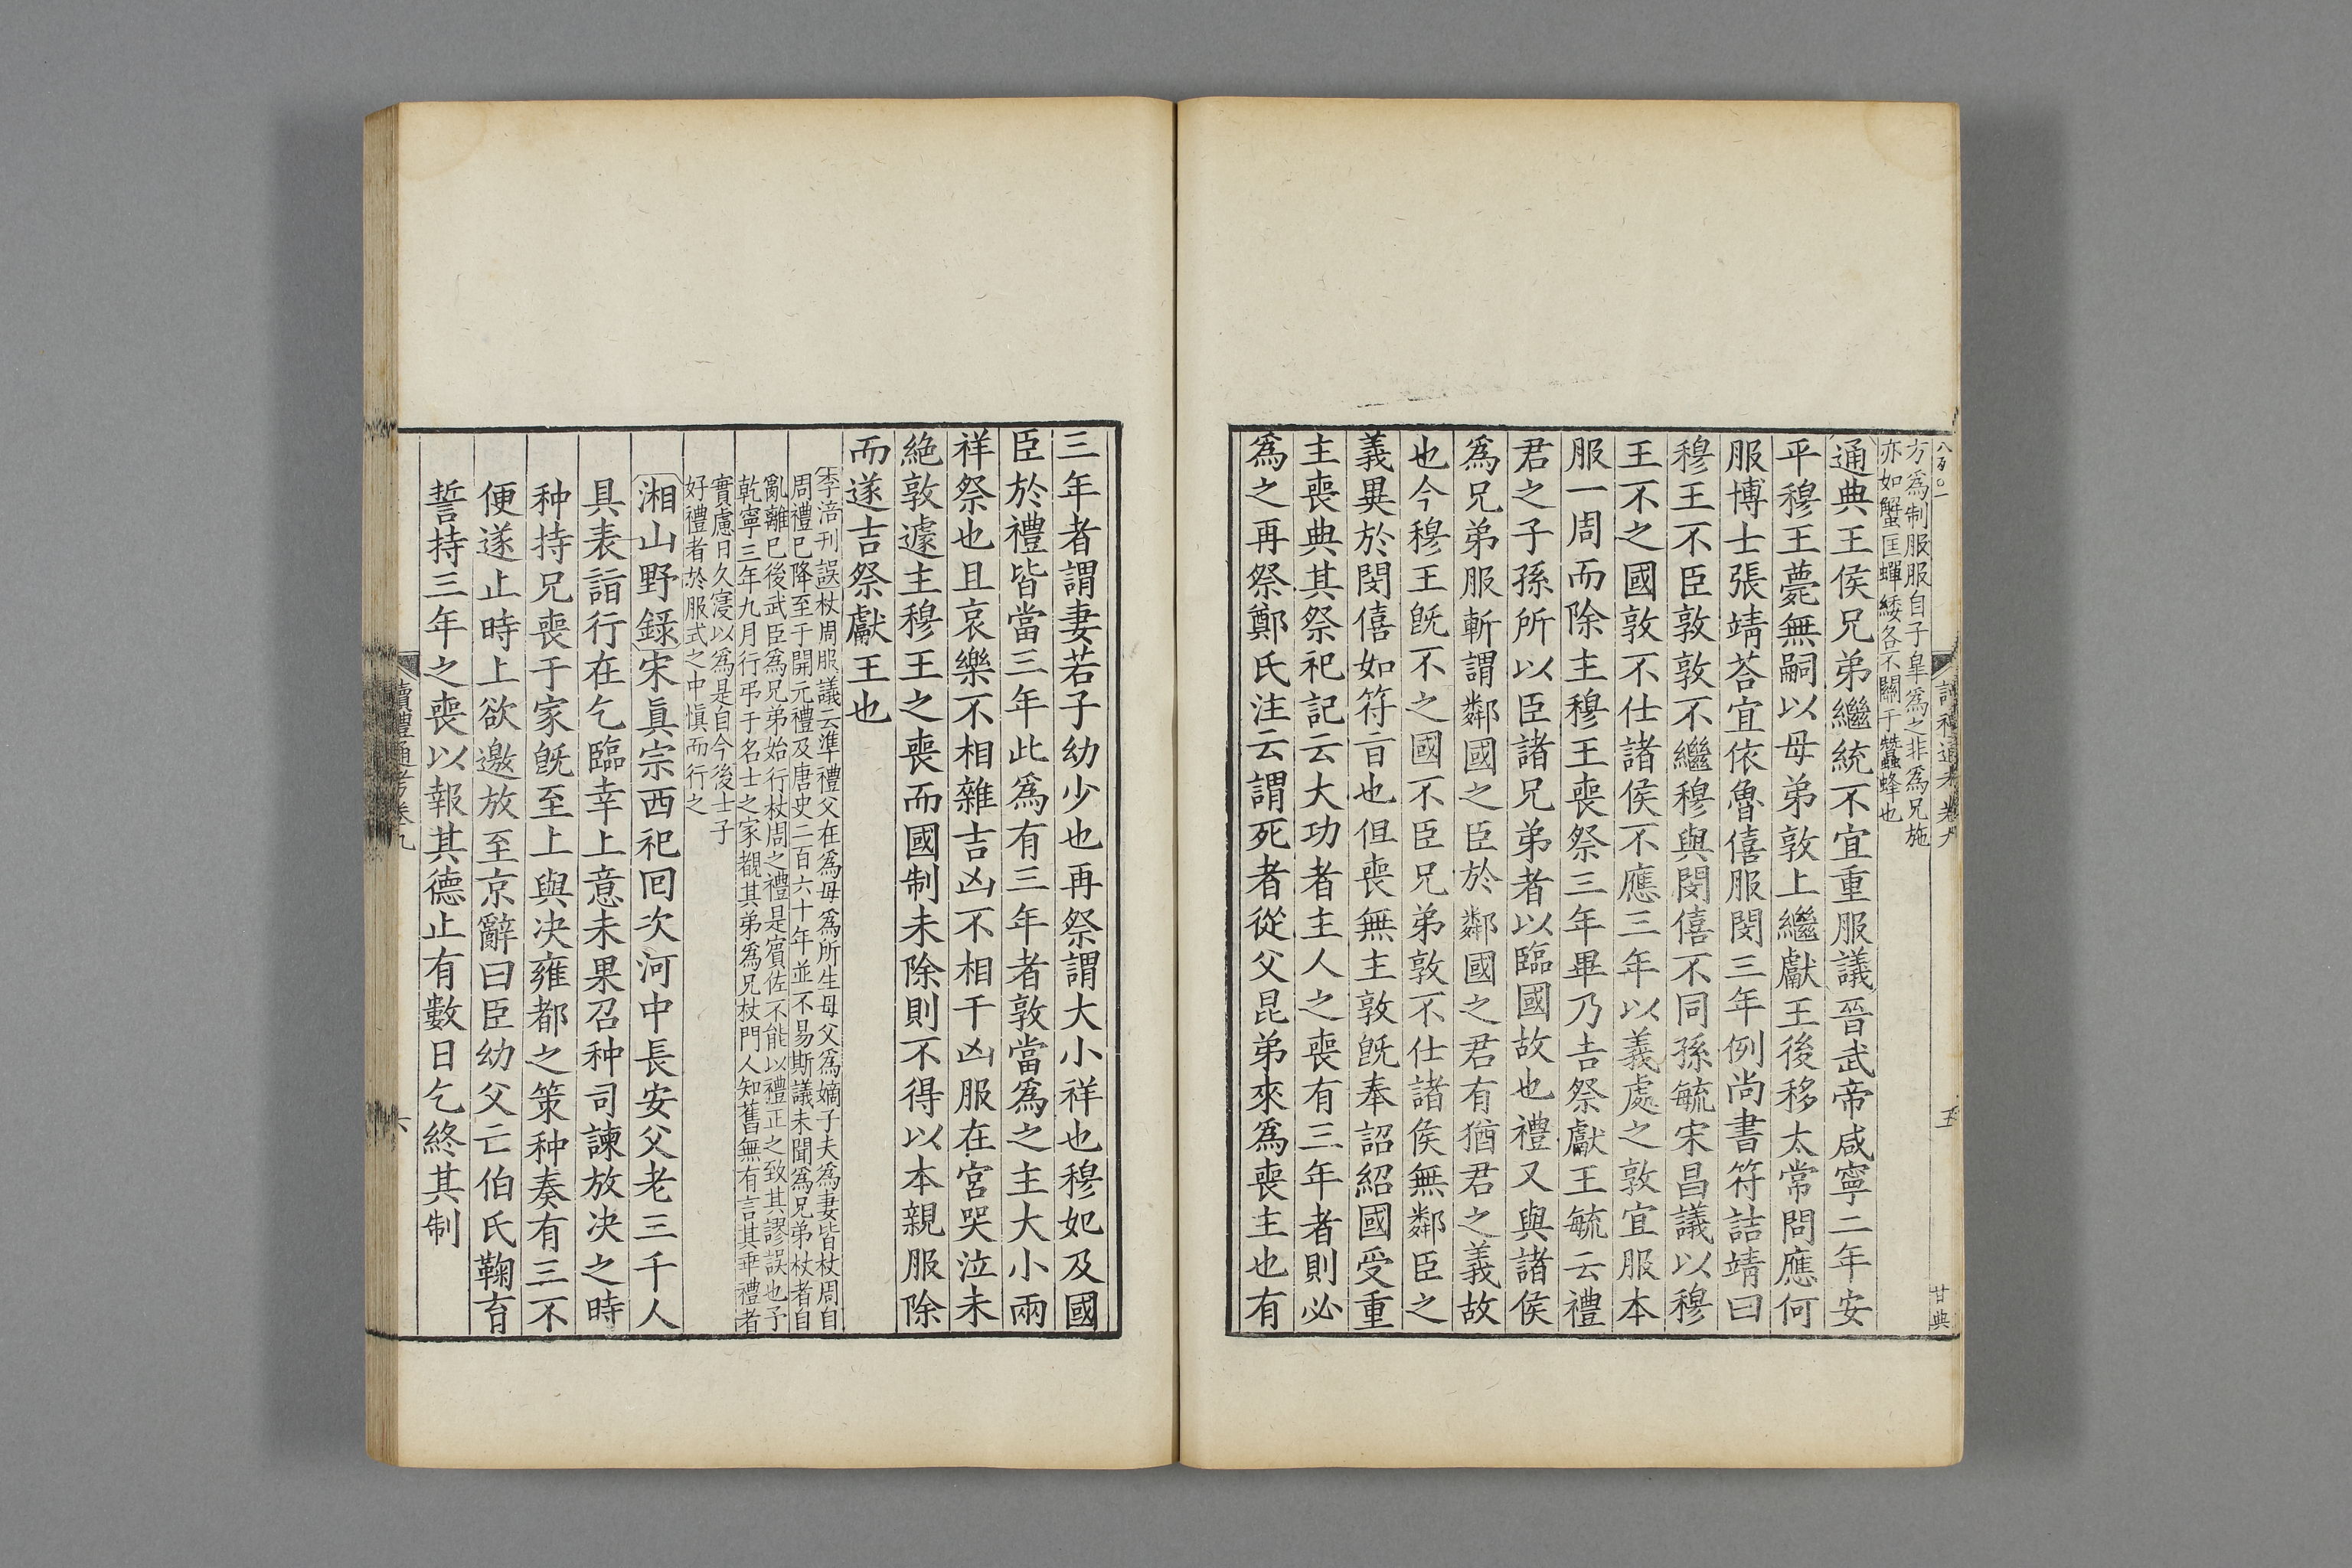 方爲制服服自子皐爲之非爲兄施
亦如蟹匡蟬緌各不關于蠶蜂也
通典王侯兄弟繼統不宜重服議晉武帝咸寧二年安
平穆王薨無嗣以母弟敦上繼獻王後移太常問應何
服博士張靖荅宜依魯僖服閔三年例尚書符詰靖曰
穆王不臣敦敦不繼穆與閔僖不同孫毓宋昌議以穆
王不之國敦不仕諸侯不應三年以義處之敦宜服本
服一周而除主穆王喪祭三年畢乃吉祭獻王毓云禮
君之子孫所以臣諸兄弟者以臨國故也禮又與諸侯
爲兄弟服斬謂鄰國之臣於鄰國之君有猶君之義故
也今穆王旣不之國不臣兄弟敦不仕諸侯無鄰臣之
義異於閔僖如符㫖也但喪無主敦旣奉詔紹國受重
主喪典其祭祀記云大功者主人之喪有三年者則必
爲之再祭鄭氏注云謂死者從父昆弟來爲喪主也有
五
甘典
三年者謂妻若子幼少也再祭謂大小祥也穆妃及國
臣於禮皆當三年此爲有三年者敦當爲之主大小兩
祥祭也且哀樂不相雜吉凶不相干凶服在宮哭泣未
絶敦遽主穆王之喪而國制未除則不得以本親服除
而遂吉祭獻王也
李涪刊誤杖周服議云準禮父在爲母爲所生母父爲嫡子夫爲妻皆杖周自
周禮已降至于開元禮及唐史二百六十年並不易斯議未聞爲兄弟杖者自
亂離已後武臣爲兄弟始行杖周之禮是賓佐不能以禮正之致其謬誤也予
乾寧三年九月行弔于名士之家覩其弟爲兄杖門人知舊無有言其乖禮者
實慮日久寖以爲是自今後士子
好禮者於服式之中愼而行之
湘山野録宋眞宗西祀回次河中長安父老三千人
具表詣行在乞臨幸上意未果召种司諫放决之時
种持兄喪于家旣至上與决雍都之策种奏有三不
便遂止時上欲邀放至京辭曰臣幼父亡伯氏鞠育
誓持三年之喪以報其德止有數日乞終其制
讀禮通考卷九